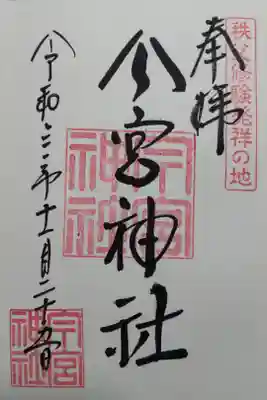 秩父修験発祥の地
奉拝
今宮神社
今宮神社
令和六年十一月二十五日
今宮神社